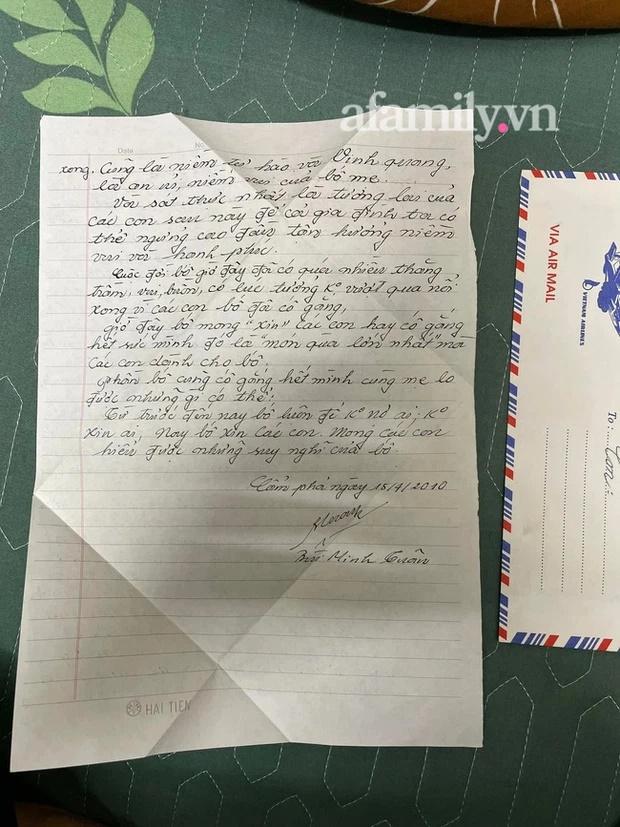 afamily.vn
Date
No
xong. Cũng là niềm tự hào và Vinh quang,
là an ủi, niềm vui của bố mẹ.
Và sát thực nhất là tương lai của
các con sau này để cả gia đình ta có
thể ngửng cao đầu tận hưởng niềm
vui và hạnh phúc.
Cuộc đời bố giờ đây đã có quá nhiều thăng
trầm, vui, buồn, có lúc tưởng K° vượt qua nổi
xong vì các con bố đã cố gắng,
giờ đây bố mong "xin" các con hãy cố gắng
hết sức mình đó là "món quà lớn nhất mà
các con dành cho bố.
phần bố cũng cố gắng hết mình cùng mẹ lo
được những gì có thể!
Từ trước đến nay bố luôn để K° nợ ai, K°
xin ai, Nay bố xin các con. Mong các con
hiểu được những suy nghĩ của bố.
Cẩm phả ngày 15/4/2010
Minh Tuân
HAI TIEN
VIA AIR MAIL
VIETNAM AIRLINES
To: Con